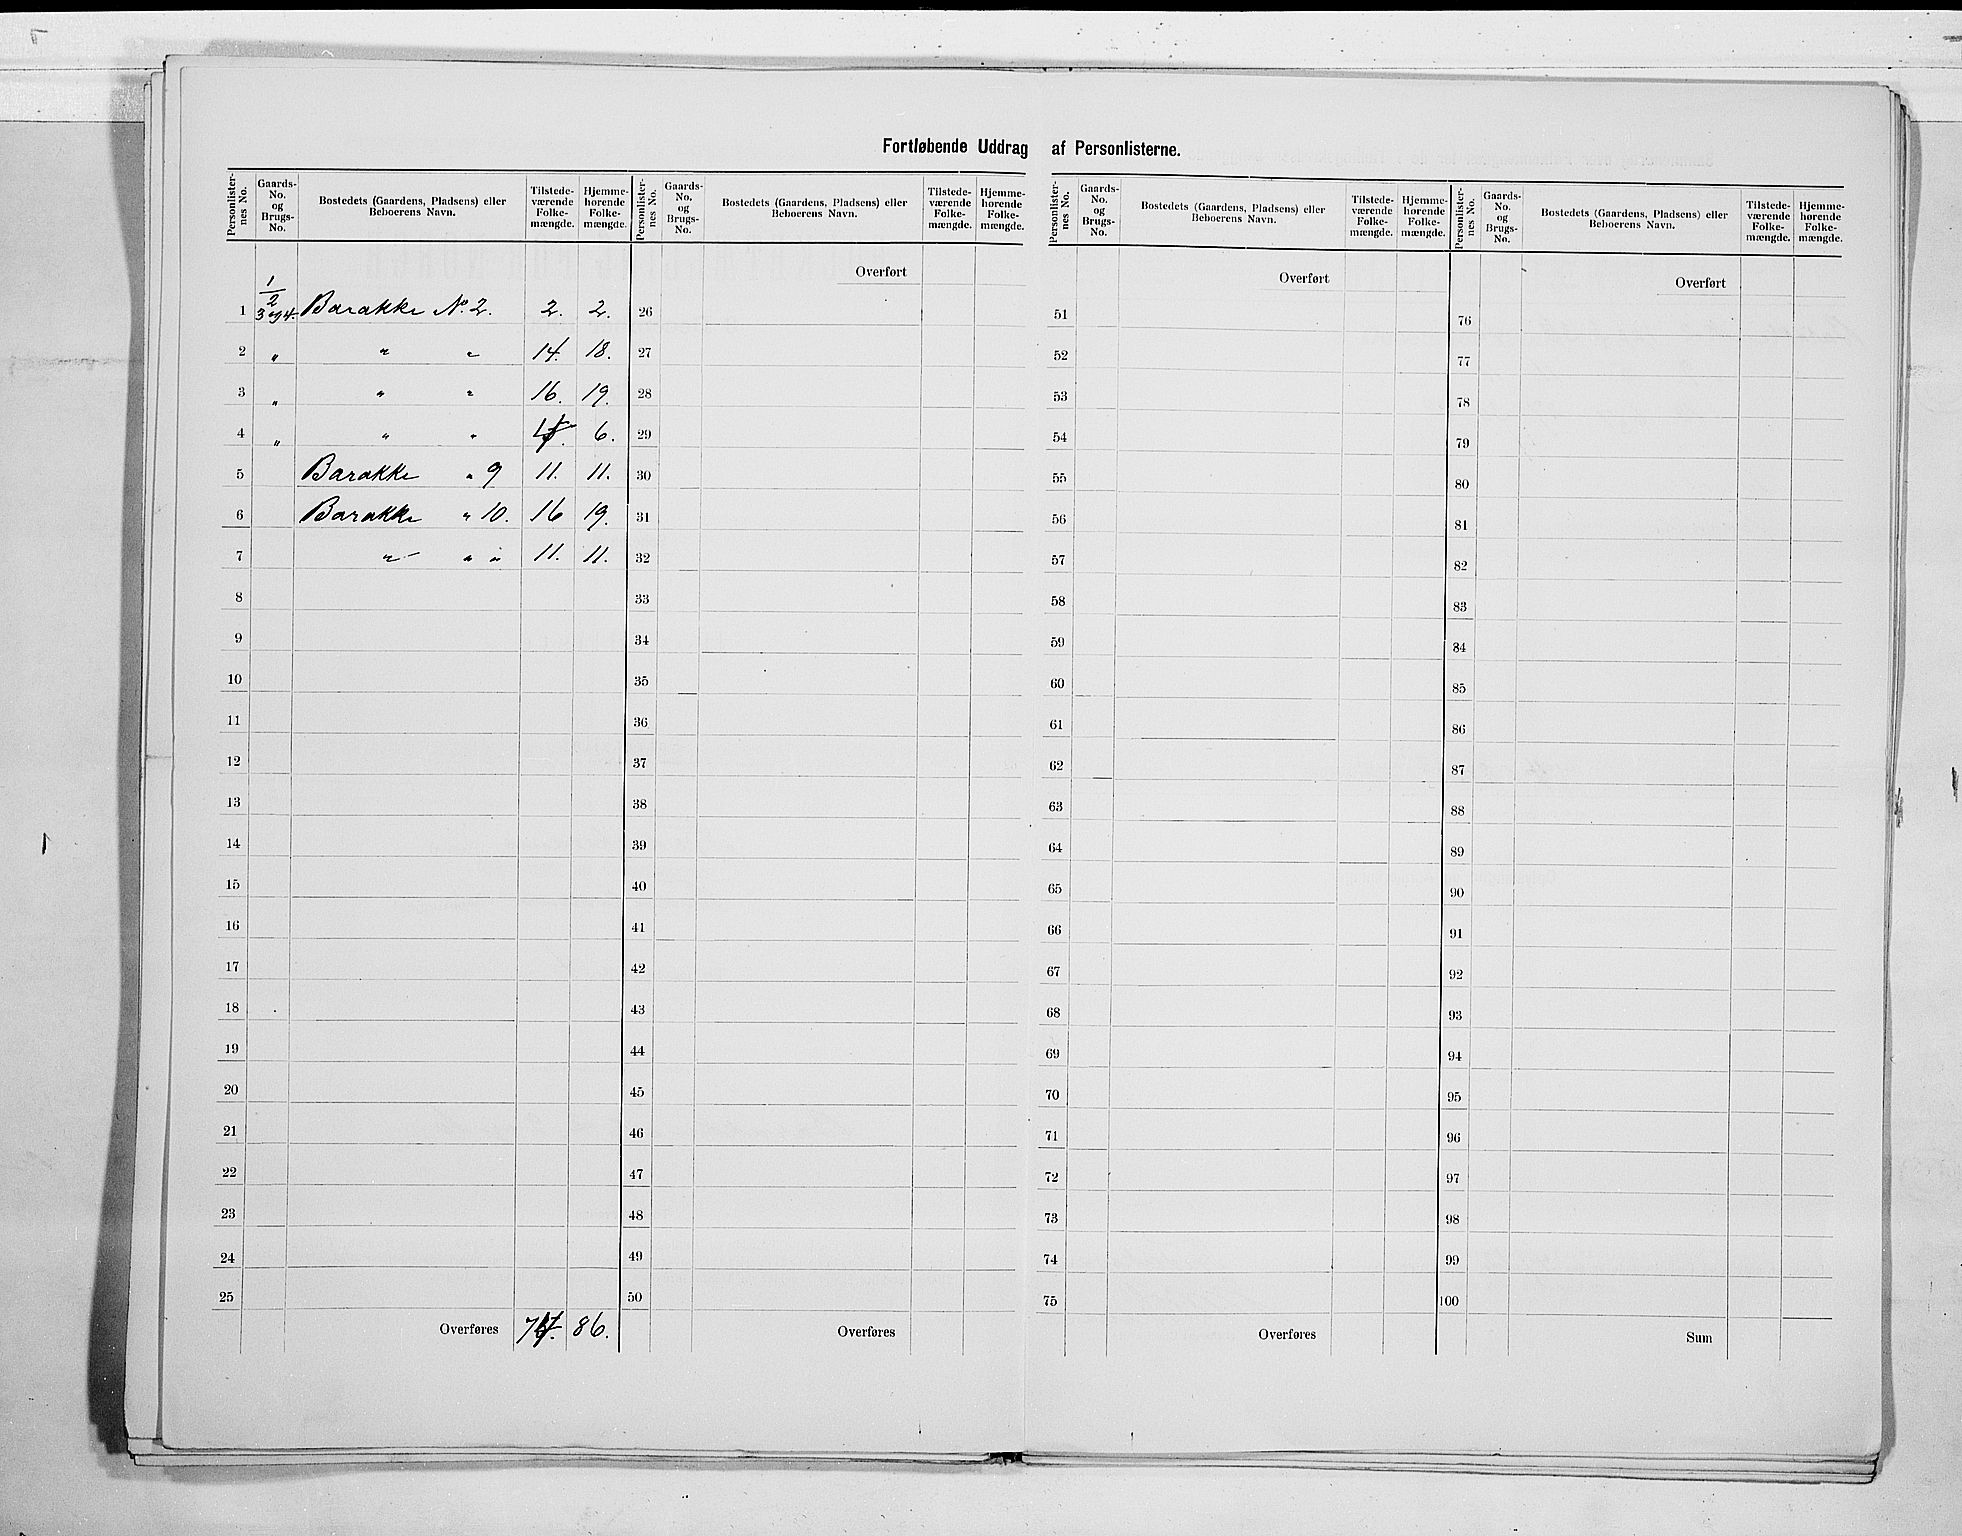 Fortløbende Uddrag af Personlisterne.
Personlister-
nes No.
Gaards-
No.
og
Brugs-
No.
Bostedets (Gaardens, Pladsens) eller
Beboerens Navn.
Tilstede-
værende
Folke-
mængde.
Hjemme-
hørende
Folke-
mængde.
1
2
1 3 og 4. Barakke No. 2. 2. 2.
2 " " " 14. 18.
3 " " " 16. 19.
4 " " " 6.
5 Barakke " 9 11. 11.
6 Barakke " 10. 16 19.
7 " " " 11. 11.
8
9
10
11
12
13
14
15
16
17
18
19
20
21
22
23
24
25
Overføres 86.
Personlister-
nes No.
Gaards-
No.
og
Brugs-
No.
Bostedets (Gaardens, Pladsens) eller
Beboerens Navn.
Tilstede-
værende
Folke-
mængde.
Hjemme-
hørende
Folke-
mængde.
Overført
26
27
28
29
30
31
32
33
34
35
36
37
38
39
40
41
42
43
44
45
46
47
48
49
50
Overføres
Personlister-
nes No.
Gaards-
No.
og
Brugs-
No.
Bostedets (Gaardens, Pladsens) eller
Beboerens Navn.
Tilstede-
værende
Folke-
mængde.
Hjemme-
hørende
Folke-
mængde.
Overført
51
52
53
54
55
56
57
58
59
60
61
62
63
64
65
66
67
68
69
70
71
72
73
74
75
Overføres
Personlister-
nes No.
Gaards-
No.
og
Brugs-
No.
Bostedets (Gaardens, Pladsens) eller
Beboerens Navn.
Tilstede-
værende
Folke-
mængde.
Hjemme-
hørende
Folke-
mængde.
Overført
76
77
78
79
80
81
82
83
84
85
86
87
88
89
90
91
92
93
94
95
96
97
98
99
100
Sum